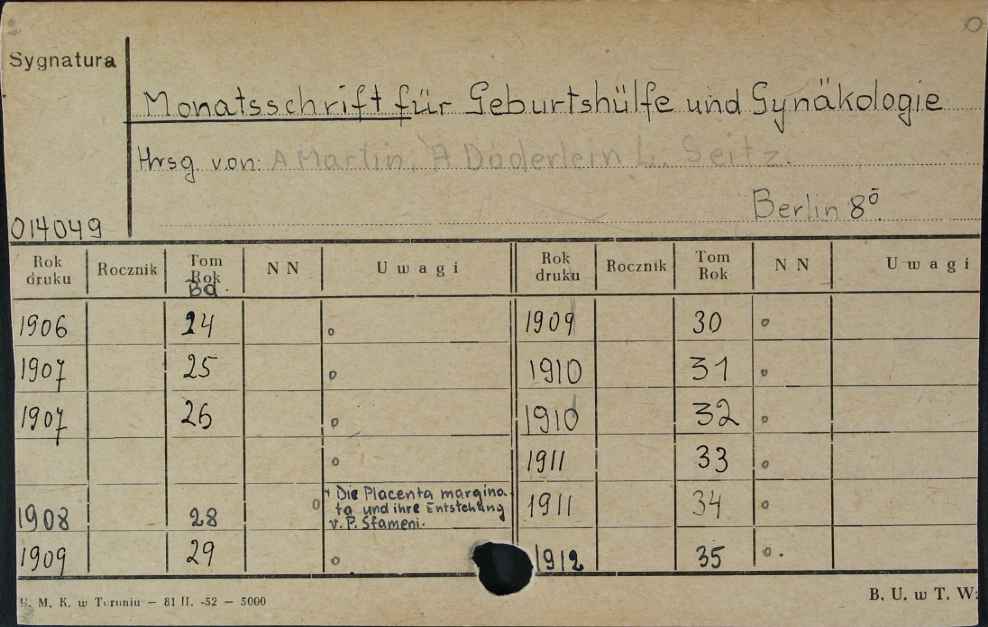 Sygnatura
Monatsschrift für Geburtshülfe und Gynäkologie
Hrsg. von: A Martin, A Döderlein L. Seitz.
Berlin 8°.
014049
Rok druku Rocznik Tom Rok Bd. NN Uwagi Rok druku Rocznik Tom Rok NN Uwagi
1906 24 1909 30
1907 25 1910 31
1907 26 1910 32
1911 33
1908 28 + Die Placenta margina- 1911 34
ta und ihre Entstehung
v. P. Sfameni.
1909 29 1912 35
M. K. w Toruniu — 81 II. -52 — 5000
B. U. w T. W: